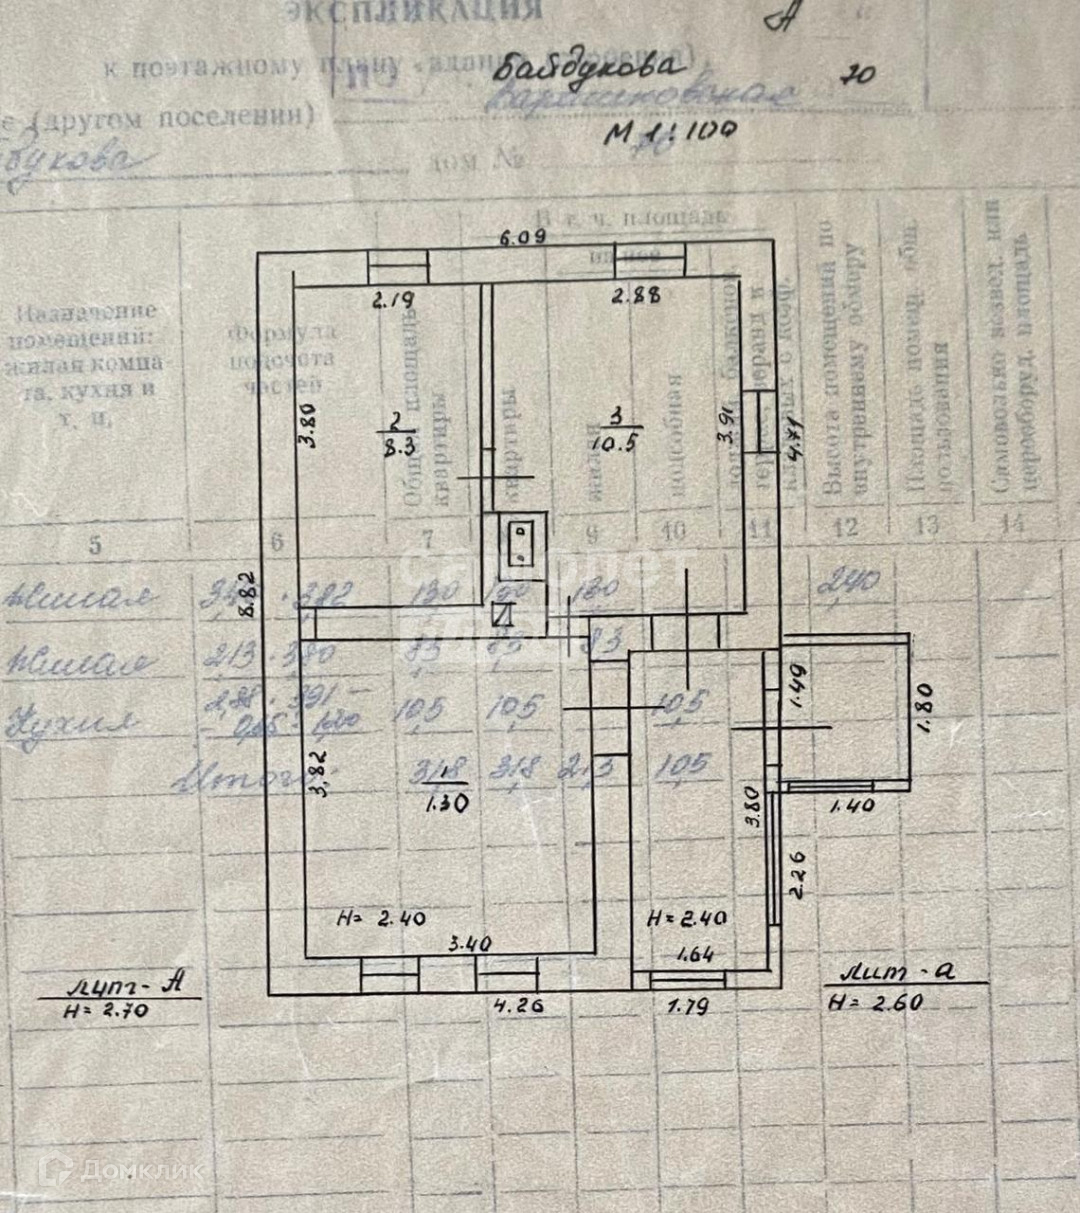 ЭКСПЛИКАЦИЯ
А
к поэтажному плану
Байдукова 70
е (другом поселении)
М 1:100
дом № 70
В т. ч. площадь
из нее
Назначение
помещений:
жилая комна-
та, кухня и
т. п.
Формула
подсчета
частей
Общая площадь
квартиры
квартиры
жилая
подсобная
Высота помещений по
внутреннему обмеру
Площадь помещ. общ.
пользования
Самовольно возвед. или
переоборуд. площадь
5 6 7 9 10 11 12 13 14
6.09
2.19 2.88
3.80
2
8.3
3
10.5
3.91
4.71
8.82
Жилая 130 130 130 2,40
Жилая 2,13 · 3,80 8,3 8,3 8,3
Кухня 2,88 · 3,91 – 10,5 10,5 10,5
Итого: 31,8 31,8 21,3 10,5
1.49
1.80
3.82
1
1.30
3.80
1.40
2.26
Н= 2.40
Н= 2.40
3.40
1.64
лит - А
Н= 2.70
лит - а
Н= 2.60
4.26
1.79
самолет
плюс
Домклик